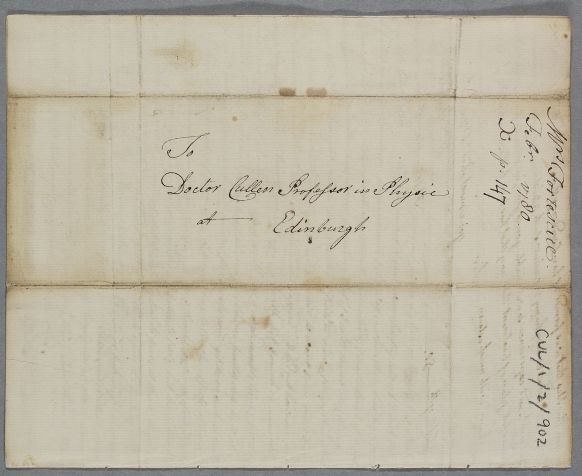 To
Doctor Cullen Professor in Physic
at Edinburgh
Mrs
Febr. 1780.
X p. 147
CUL/1/2/902